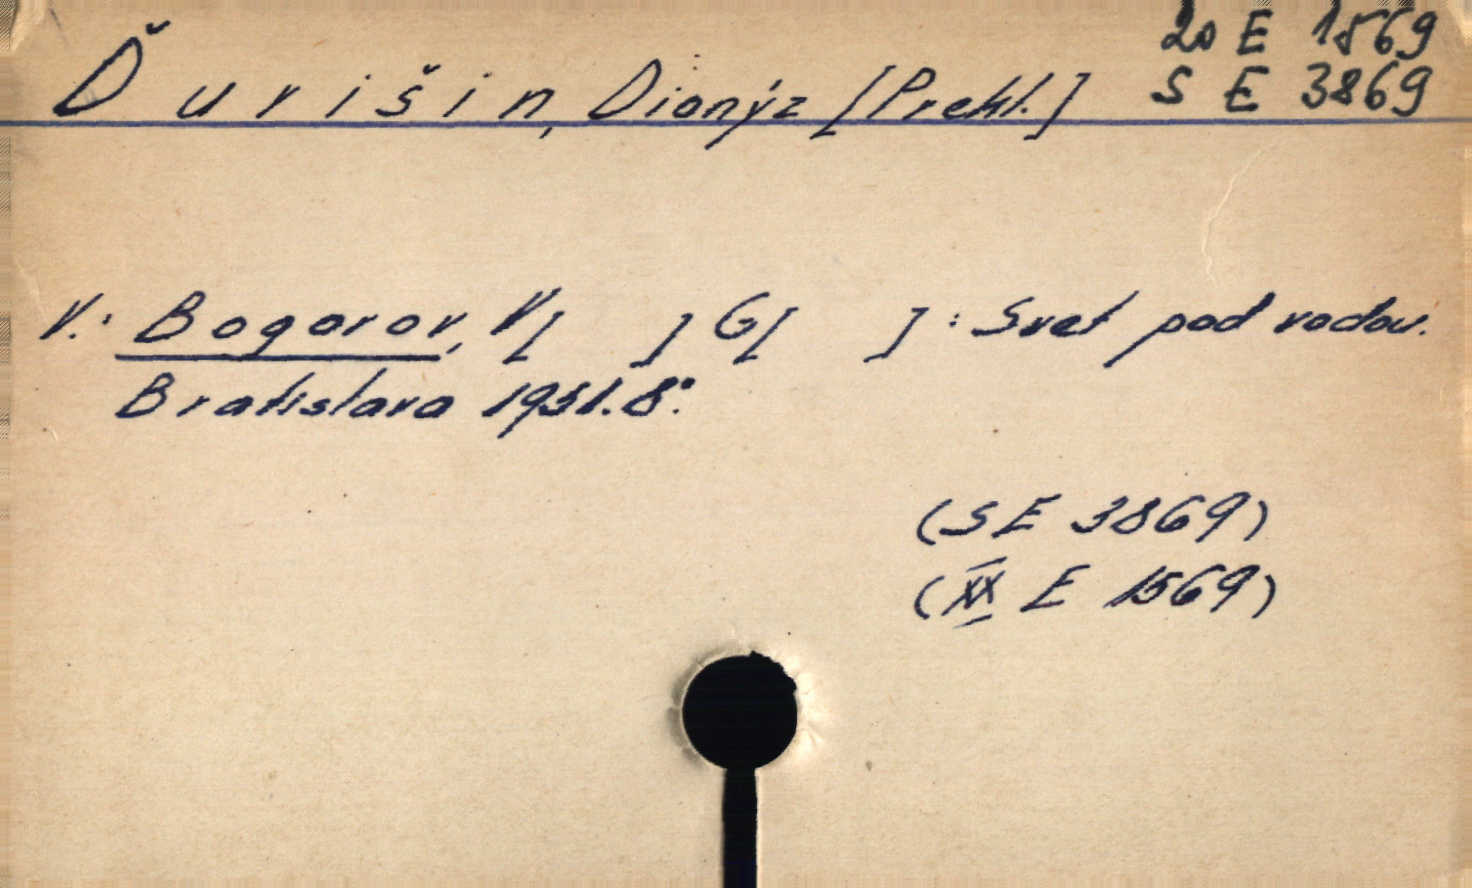 20 E 1569
Ďurišin, Dionýz [Prekl.] S E 3869
V.: Bogorov, V[ ] G[ ] : Svet pod vodou.
Bratislava 1951. 8°.
(S E 3869)
(XX E 1569)